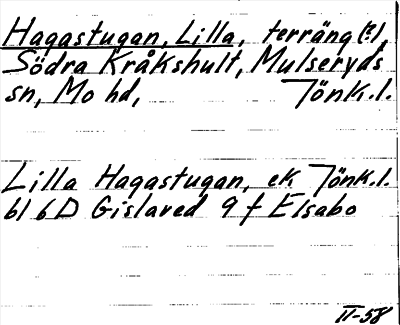 Hagastugan, Lilla, terräng(?),
Södra Kråkshult, Mulseryds
sn, Mo hd, Jönk.l.
Lilla Hagastugan, ek Jönk.l.
bl 6D Gislaved 9 f Elsabo
II-58